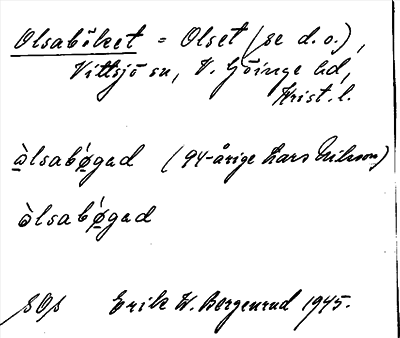 Olsaböket = Olset (se d.o.),
Vittsjö sn, V. Göinge hd,
Krist. l.
òlsabǿgad (94-årige Lars Nilsson)
òlsabǿgad
SOs Erik W. Bergenrud 1945.